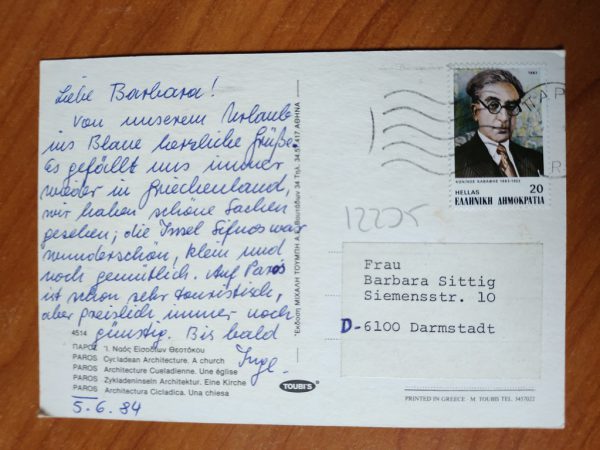 Liebe Barbara!
Von unserem Urlaub
ins Blaue herzliche Grüße.
Es gefällt uns immer
wieder in Griechenland,
wir haben schöne Sachen
gesehen; die Insel Sifnos war
wunderschön, klein und
noch gemütlich. Auf Paros
ist schon sehr touristisch,
aber preislich immer noch
günstig. Bis bald
Inge.
4514
ΠΑΡΟΣ Ἱ. Ναός Εἰσοδίων Θεοτόκου
PAROS Cycladean Architecture. A church
PAROS Architecture Cueladienne. Une église
PAROS Zykladeninseln Architektur. Eine Kirche
PAROS Architectura Cicladica. Una chiesa
5.6.84
Ἔκδοση ΜΙΧΑΛΗ ΤΟΥΜΠΗ Α.Ε. 34 Τηλ. 417 ΑΘΗΝΑ
TOUBI'S
1983
ΚΩΝ/ΝΟΣ ΚΑΒΑΦΗΣ 1863-1933
HELLAS 20
ΕΛΛΗΝΙΚΗ ΔΗΜΟΚΡΑΤΙΑ
12225
Frau
Barbara Sittig
Siemensstr. 10
D-6100 Darmstadt
PRINTED IN GREECE M TOUBIS TEL. 3457022